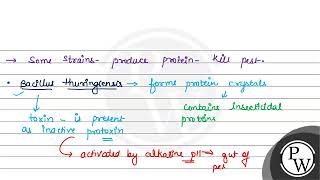 → Some strains - produce protein - kill pest.
• Bacillus thuringiensis → forms protein crystals
toxin - is present as inactive protoxin
contains insecticidal proteins
→ activated by alkaline pH → gut of pest
PW